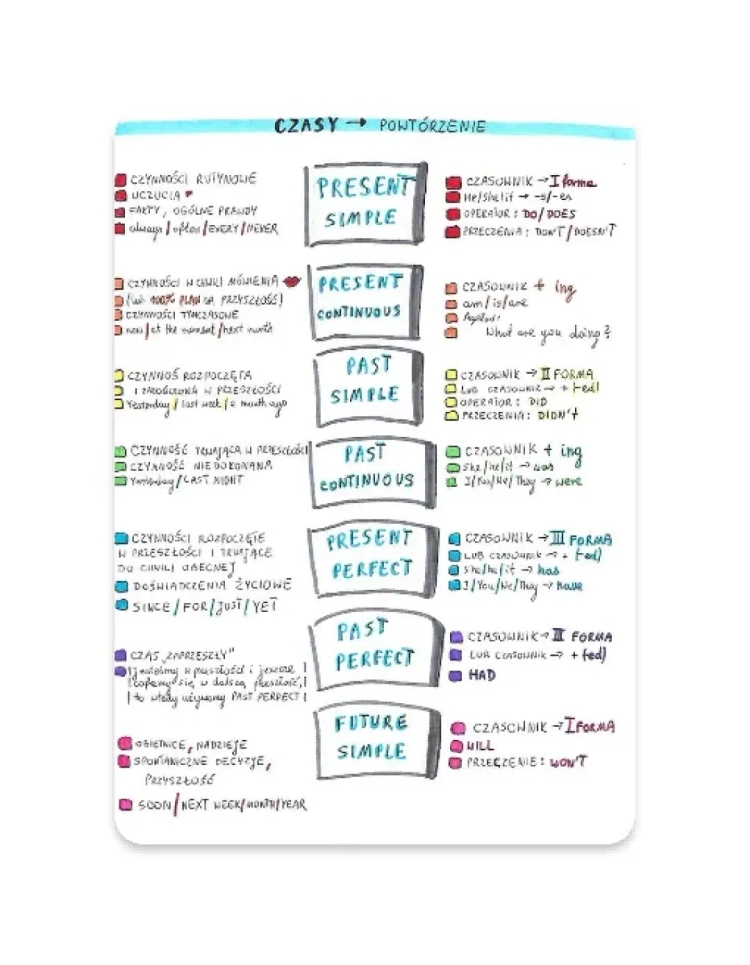 CZASY → POWTÓRZENIE
CZYNNOŚCI RUTYNOWE
UCZUCIA
FAKTY, OGÓLNE PRAWDY
always/often/EVERY/NEVER
PRESENT
SIMPLE
CZASOWNIK → I forma
He/she/it → -s/-es
OPERATOR: DO/DOES
PRZECZENIA: DON'T/DOESN'T
CZYNNOŚCI W CHWILI MÓWIENIA
(lub 100% PLAN NA PRZYSZŁOŚĆ)
CZYNNOŚCI TYMCZASOWE
now/at the moment/next month
PRESENT
CONTINUOUS
CZASOWNIK + ing
am/is/are
What are you doing?
CZYNNOŚĆ ROZPOCZĘTA
I ZAKOŃCZONA W PRZESZŁOŚCI
Yesterday/last week/a month ago
PAST
SIMPLE
CZASOWNIK → II FORMA
LUB CZASOWNIK → + (-ed)
OPERATOR: DID
PRZECZENIA: DIDN'T
CZYNNOŚĆ TRWAJĄCA W PRZESZŁOŚCI
CZYNNOŚĆ NIEDOKONANA
Yesterday/LAST NIGHT
PAST
CONTINUOUS
CZASOWNIK + ing
She/he/it → was
I/You/We/They → were
CZYNNOŚCI ROZPOCZĘTE
W PRZESZŁOŚCI I TRWAJĄCE
DO CHWILI OBECNEJ
DOŚWIADCZENIA ŻYCIOWE
SINCE/FOR/JUST/YET
PRESENT
PERFECT
CZASOWNIK → III FORMA
LUB CZASOWNIK → + (-ed)
She/he/it → has
I/You/We/They → have
CZAS "ZAPRZESZŁY"
Jesteśmy w przeszłości i jeszcze
cofamy się w dalszą przeszłość,
to wtedy używamy PAST PERFECT
PAST
PERFECT
CZASOWNIK → III FORMA
LUB CZASOWNIK → + (-ed)
HAD
OBIETNICE, NADZIEJE
SPONTANICZNE DECYZJE,
PRZYSZŁOŚĆ
SOON/NEXT WEEK/MONTH/YEAR
FUTURE
SIMPLE
CZASOWNIK → I FORMA
WILL
PRZECZENIE: WON'T